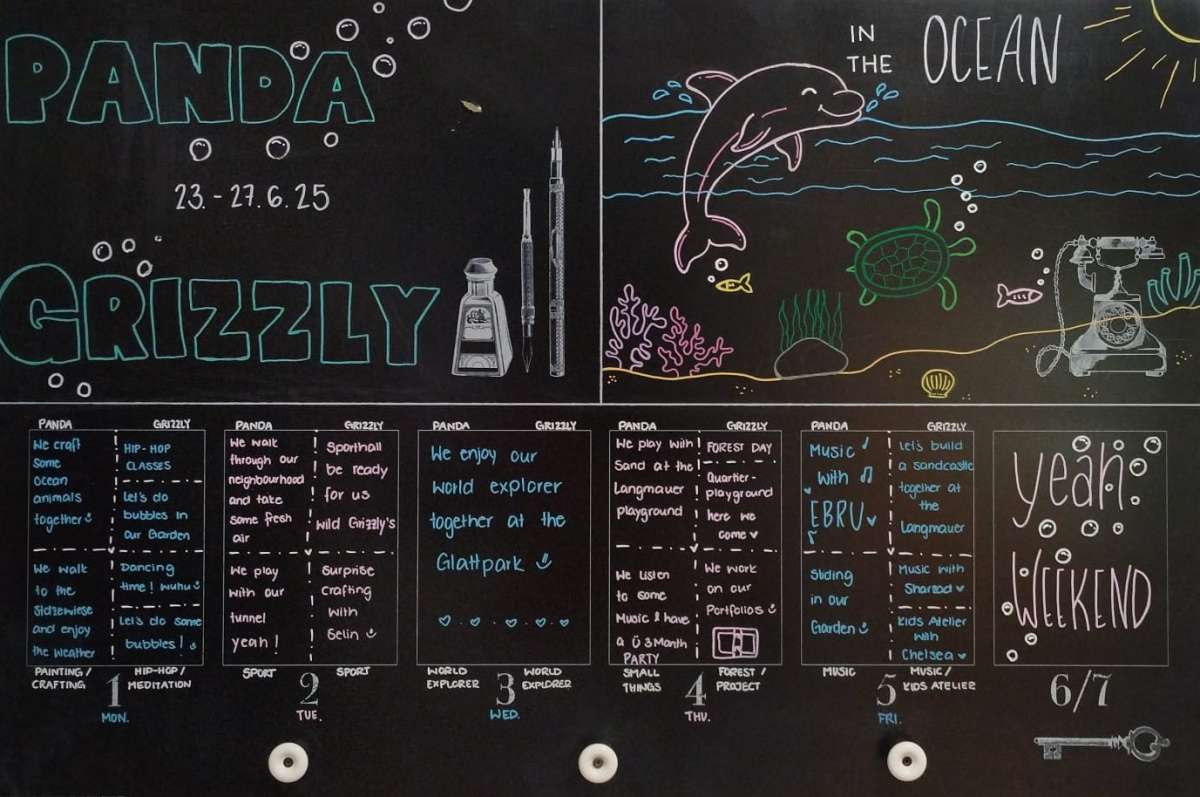 PANDA
23.-27.6.25
GRIZZLY
IN THE OCEAN
PANDA
We craft
some
ocean
animals
together
We walk
to the
and enjoy
the weather
PAINTING/
CRAFTING
GRIZZLY
HIP-HOP
CLASSES
Let's do
bubbles in
our Garden
Dancing
time! wuhu
Let's do some
bubbles!
HIP-HOP/
MEDITATION
1
MON.
PANDA
We walk
through our
neighbourhood
and take
some fresh
air
We play
with our
tunnel
yeah!
SPORT
GRIZZLY
Sporthall
be ready
for us
wild Grizzly's
Surprise
crafting
with
Selin
SPORT
2
TUE.
PANDA
GRIZZLY
We enjoy our
world explorer
together at the
Glattpark
WORLD
EXPLORER
WORLD
EXPLORER
3
WED.
PANDA
We play with
Sand at the
Langmauer
playground
We listen
to some
Music & have
a Ü3Month
PARTY
SMALL
THINGS
GRIZZLY
FOREST DAY
Quartier-
playground
here we
come
We work
on our
Portfolios
FOREST/
PROJECT
4
THU.
PANDA
Music
with
EBRU
Sliding
in our
Garden
MUSIC
GRIZZLY
Let's build
a sandcastle
together at
the
Langmauer
Music with
Sharzad
Kids Atelier
with
Chelsea
MUSIC/
KIDS ATELIER
5
FRI.
yeah
WEEKEND
6/7